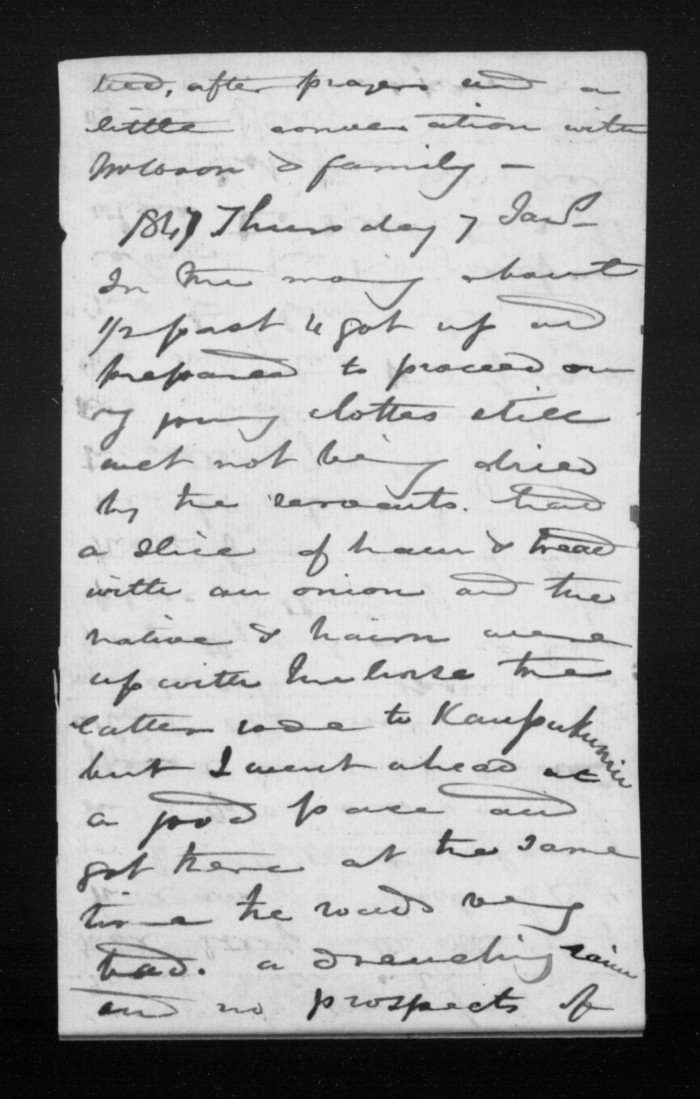 bed, after prayers and a
little conversation with
& family —
1847 Thursday 7 Jany
In the morning about
1/2 past 4 got up and
prepared to proceed on
my journey clothes still
wet not being dried
by the servants. had
a slice of ham & bread
with an onion and the
native & were
up with the horse the
latter rode to Kaupukunui
but I went ahead at
a good pace and
got there at the same
time the roads very
bad. a drenching rain
and no prospects of